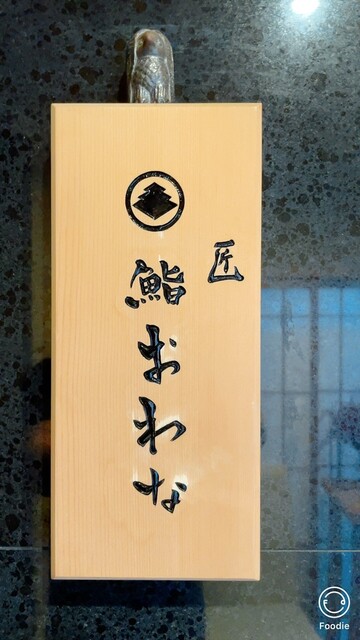 匠
鮨おわな
Foodie